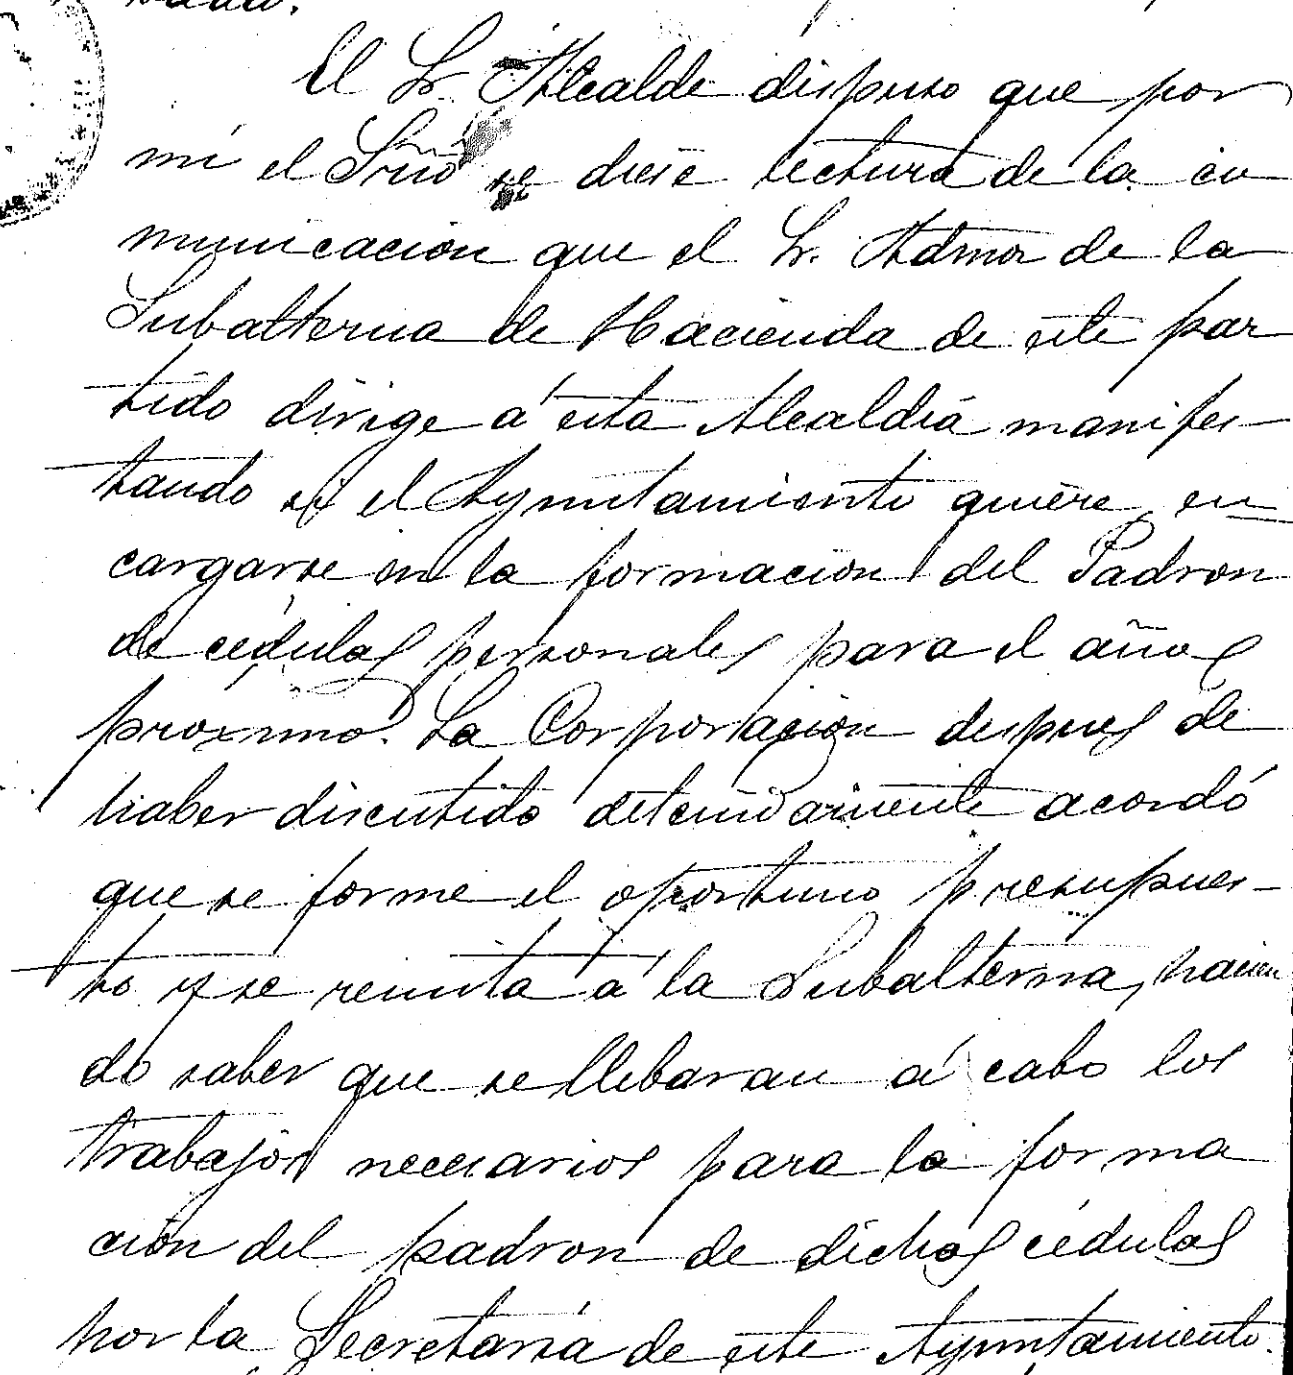 El Sr. Alcalde dispuso que por
mi el Srio se diese lectura de la co
municacion que el Sr. Admor de la
Subalterna de Hacienda de este par
tido dirige á esta Alcaldia manifes-
tando si el Ayuntamiento quiere en
cargarse en la formacion del Padron
de cédulas personales para el año
proximo. La Corporacion despues de
haber discutido detenidamente acordó
que se forme el oportuno presupues-
to y se remita á la Subalterna, hacien
do saber que se llebaran á cabo los
trabajos necesarios para la forma
ción del padron de dichas cédulas
por la Secretaria de este Ayuntamiento.